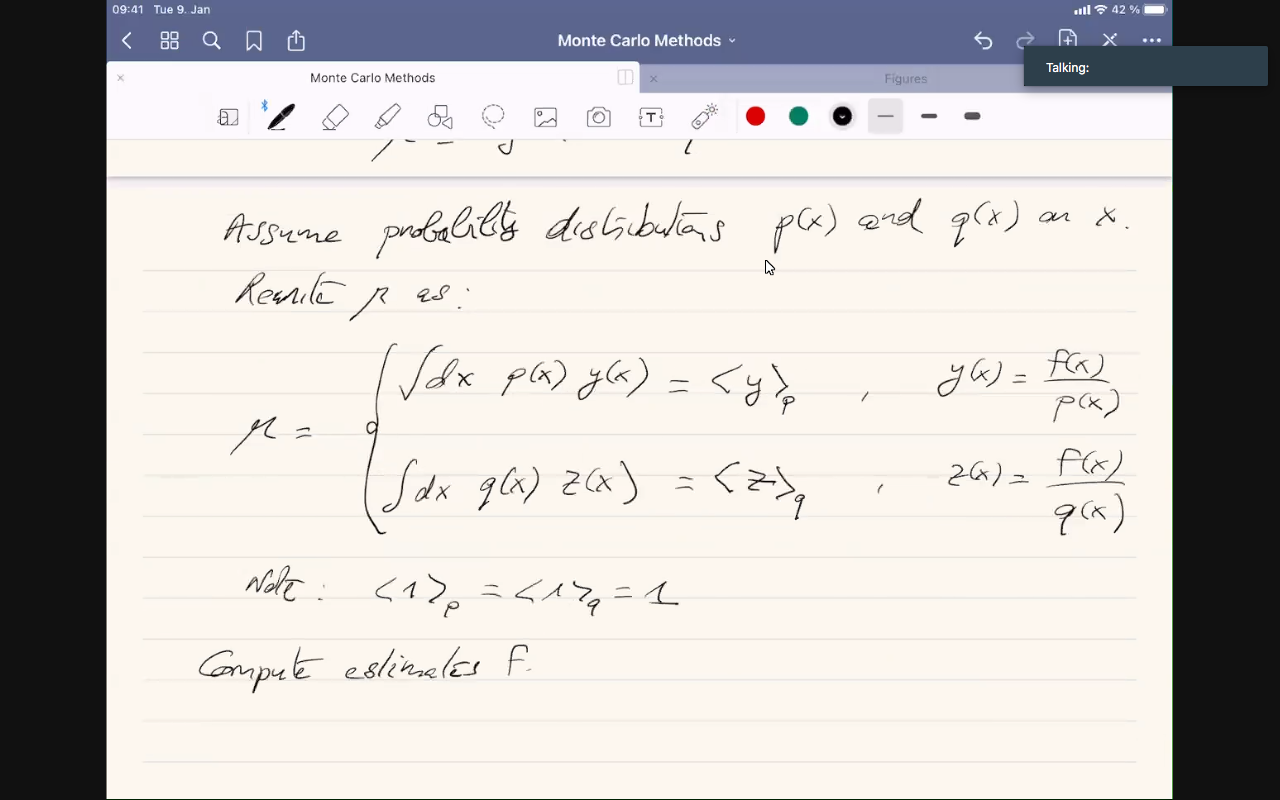 09:41 Tue 9. Jan 42 %
Monte Carlo Methods
Talking:
Monte Carlo Methods Figures
Assume probability distributions p(x) and q(x) on x.
Rewrite μ as:
μ = { ∫dx p(x) y(x) = <y>_p , y(x) = f(x)/p(x)
∫dx q(x) z(x) = <z>_q , z(x) = f(x)/q(x)
Note: <1>_p = <1>_q = 1
Compute estimates f